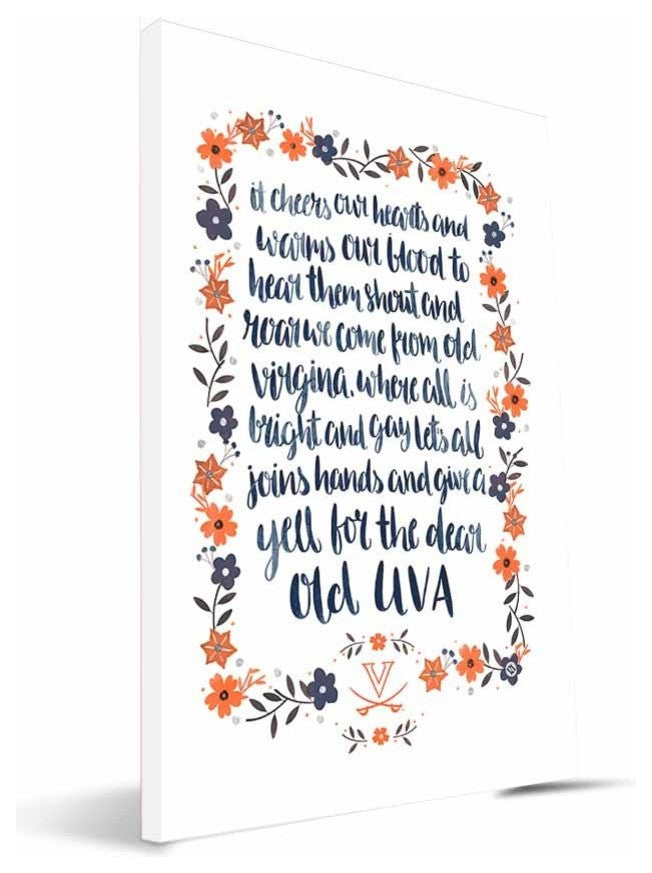 it cheers our hearts and
warms our blood to
hear them shout and
roar we come from old
virgina. where all is
bright and gay let's all
joins hands and give a
yell for the dear
old UVA
V